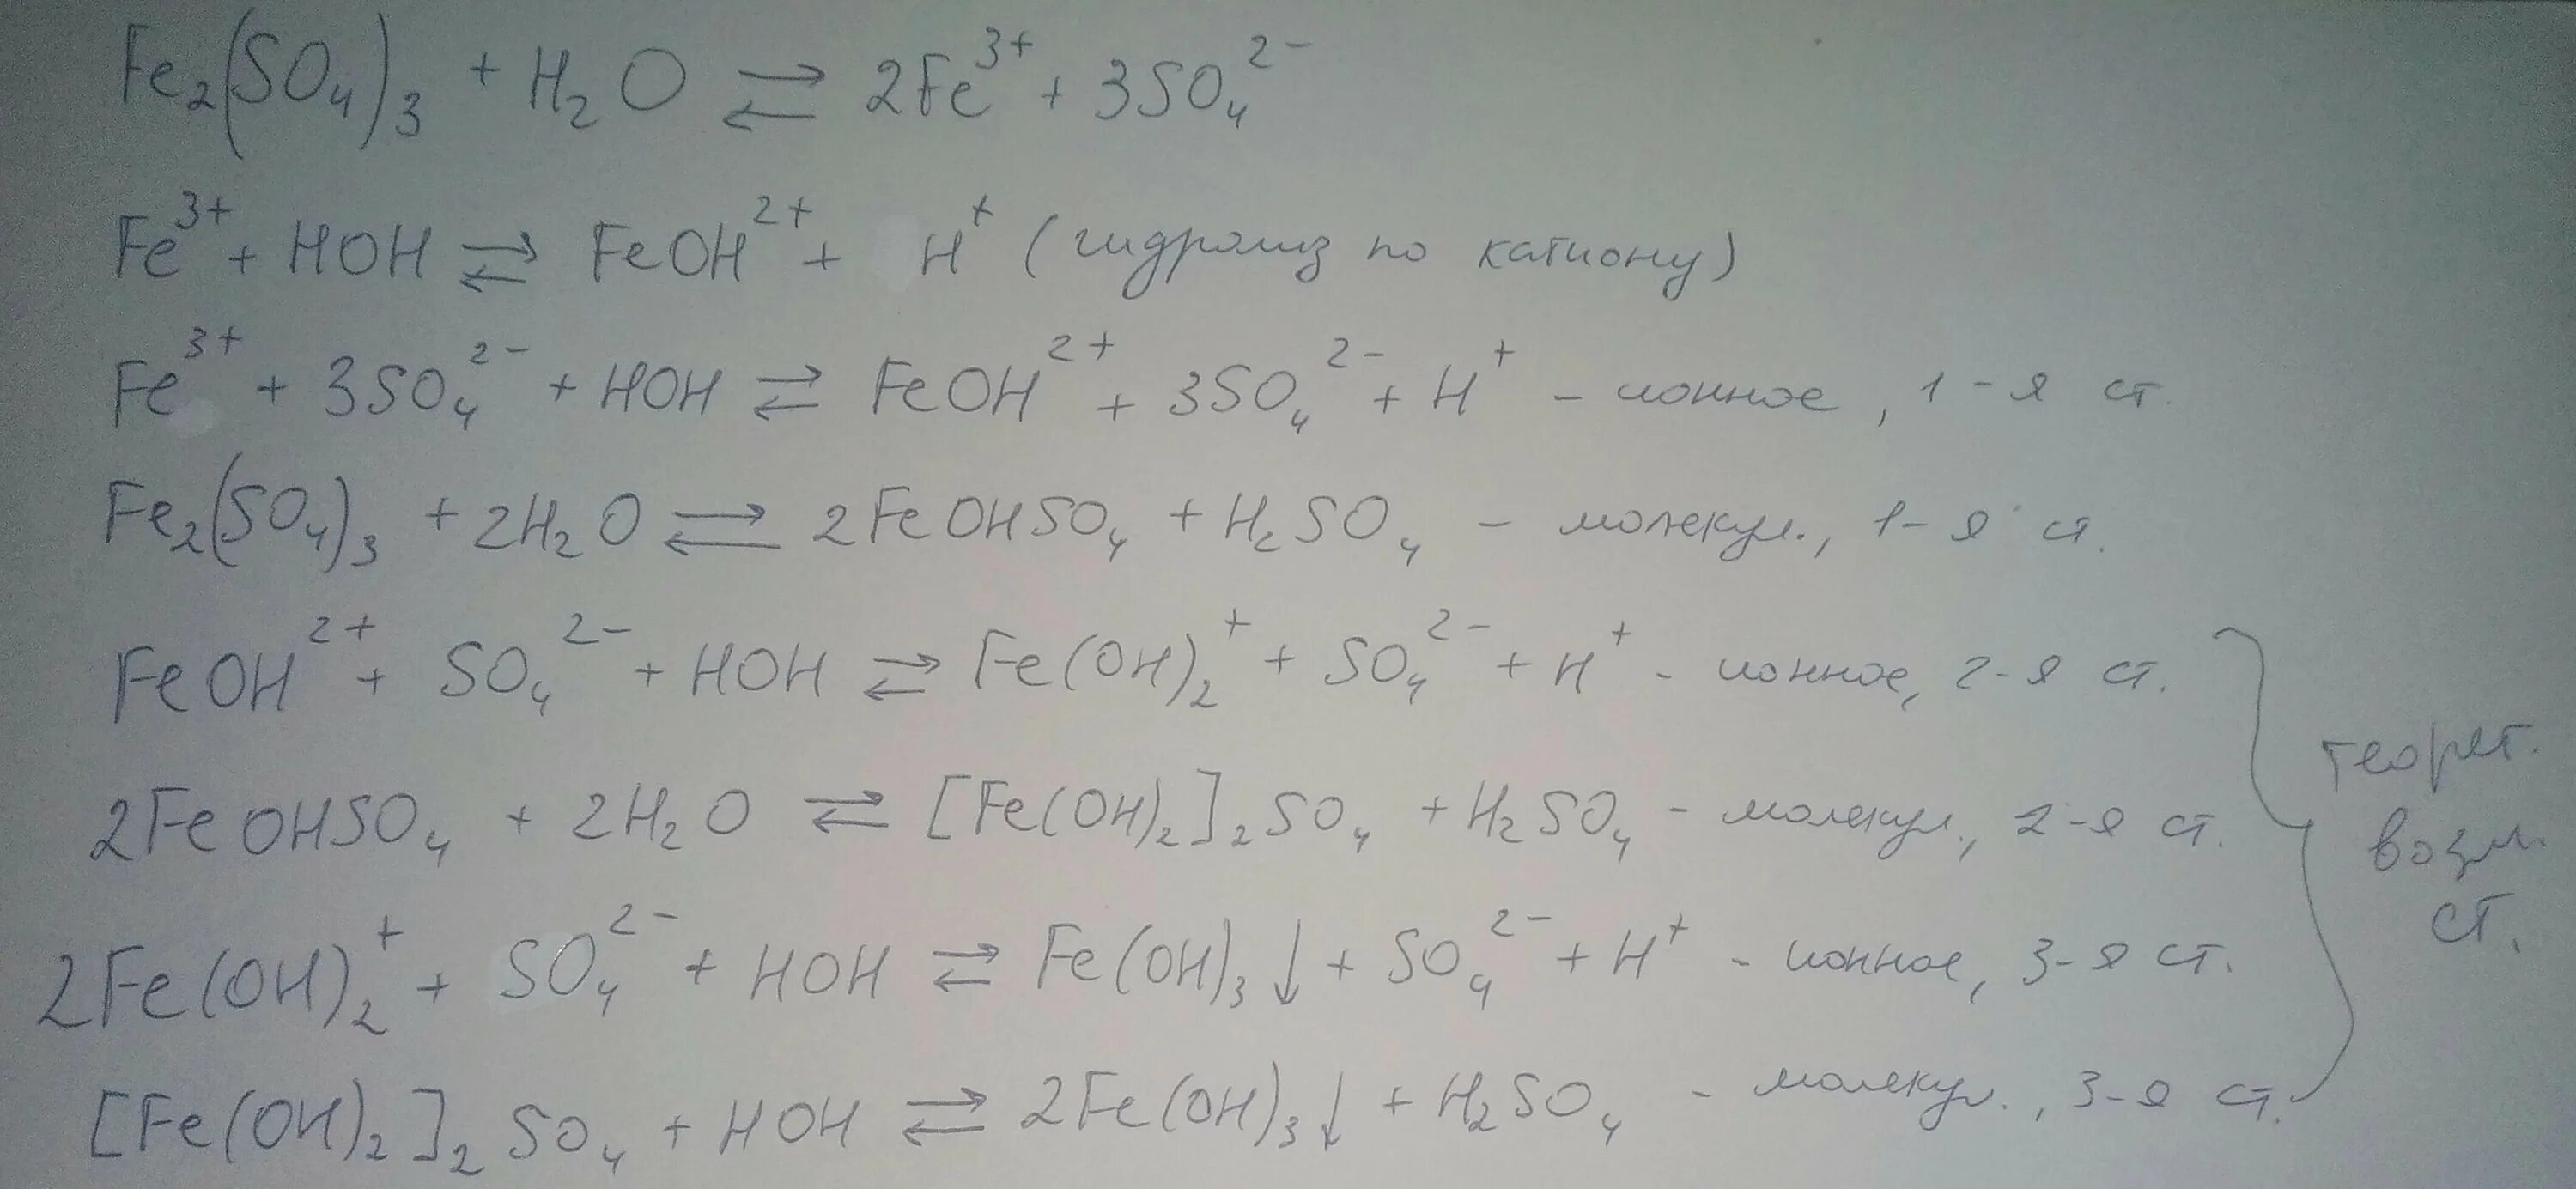 Fe₂(SO₄)₃ + H₂O ⇄ 2Fe³⁺ + 3SO₄²⁻
Fe³⁺ + HOH ⇄ FeOH²⁺ + H⁺ (гидролиз по катиону)
Fe³⁺ + 3SO₄²⁻ + HOH ⇄ FeOH²⁺ + 3SO₄²⁻ + H⁺ – ионное, 1-я ст.
Fe₂(SO₄)₃ + 2H₂O ⇄ 2FeOHSO₄ + H₂SO₄ – молекул., 1-я ст.
FeOH²⁺ + SO₄²⁻ + HOH ⇄ Fe(OH)₂⁺ + SO₄²⁻ + H⁺ - ионное, 2-я ст.
2FeOHSO₄ + 2H₂O ⇄ [Fe(OH)₂]₂SO₄ + H₂SO₄ - молекул., 2-я ст.
2Fe(OH)₂⁺ + SO₄²⁻ + HOH ⇄ Fe(OH)₃↓ + SO₄²⁻ + H⁺ - ионное, 3-я ст.
[Fe(OH)₂]₂SO₄ + HOH ⇄ 2Fe(OH)₃↓ + H₂SO₄ - молекул., 3-я ст.
теорет.
возм.
ст.